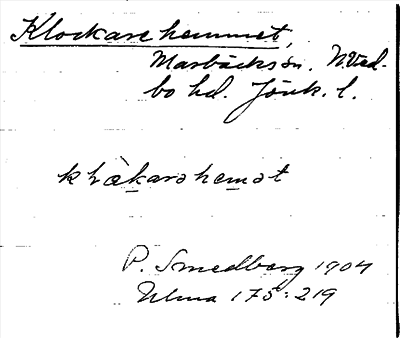 Klockarehemmet,
Marbäcks sn. N. Ved-
bo hd. Jönk. l.
P. Smedberg 1904
Ulma 175:219